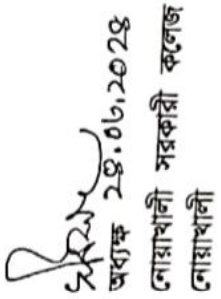 অধ্যক্ষ ২৪.০৬.২০২৪
নোয়াখালী সরকারী কলেজ
নোয়াখালী